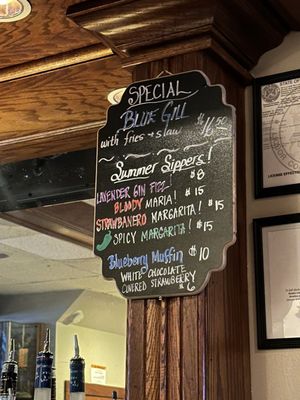 SPECIAL
BLUE GILL
with fries + slaw $16.50
Summer Sippers!
LAVENDER GIN FIZZ! $8
BLOODY MARIA! $15
STRAWBANERO MARGARITA! $15
SPICY MARGARITA! $15
Blueberry Muffin $10
WHITE CHOCOLATE
COVERED STRAWBERRY $
STATE OF